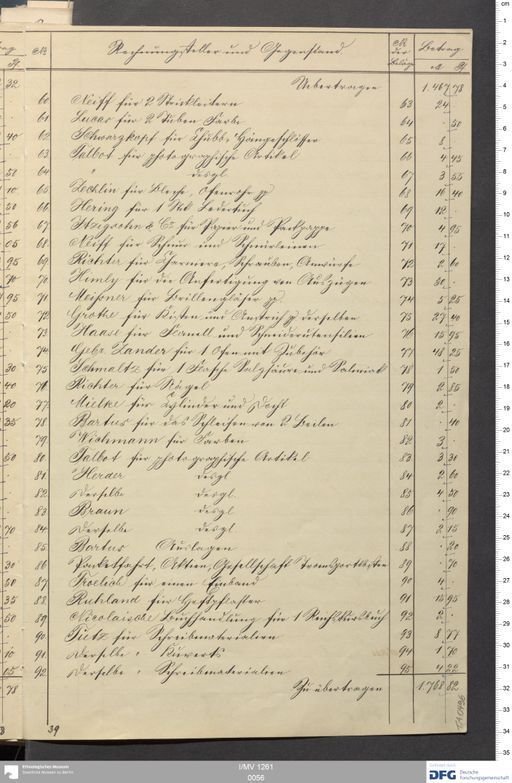 № Rechnungssteller und Gegenstand № der Beläge Betrag M Pf
Uebertragen 1.467 78
60 Neiff für 2 Strickleitern 63 24 .
61 Lucas für 2 Tuben Farbe 64 . 50
62 Schwarzkopf für Chubb-Hängeschlösser 65 8 .
63 Talbot für photographische Artikel 66 4 45
64 " desgl. 67 3 55
65 Zechlin für Bleche, Ofenrohr pp 68 16 40
66 Hering für 1 Stück Ledertuch 69 12 .
67 Itzigsohn & Co für Papier und Packpappe 70 4 95
68 Neiff für Schnur und Scheuerleinen 71 17 .
69 Richter für Scharniere, Schrauben, 72 2 60
70 Himly für die Anfertigung von Auszügen 73 30 .
71 Meißner für Brillengläser pp 74 5 25
72 Grothe für Kisten und Anstrich pp derselben 75 27 40
73 Haase für Flanell und Schneiderutensilien 76 15 95
74 Gebr. Zander für 1 Ofen mit Zubehör 77 48 25
75 Schmaltz für 1 Flasche Salzsäure und Salmiak 78 1 50
76 Richter für Nägel 79 2 85
77 Mielke für Cylinder und Docht 80 2 .
78 Bartus für das Schleifen von 2 Beilen 81 . 40
79 Wichmann für Farben 82 3 .
80 Talbot für photographische Artikel 83 3 30
81 Herder desgl 84 2 60
82 Derselbe desgl. 85 4 50
83 Braun desgl 86 . 90
84 Derselbe desgl 87 2 15
85 Bartus Auslagen 88 . 20
86 Packetfahrt, Aktien-Gesellschaft Transportkosten 89 . 70
87 Froelich für einen Einband 90 4 .
88 Ruhland für Heftpflaster 91 15 95
89 Nicolaische Buchhandlung für 1 Reichskursbuch 92 2 .
90 Tietz für Schreibmaterialien 93 8 77
91 Derselbe " Kuverts 94 1 70
92 Derselbe " Schreibmaterialien 95 4 22
Zu übertragen 1.768 82
39
Ethnologisches Museum
Staatliche Museen zu Berlin
I/MV 1261
0056
Gefördert durch
DFG Deutsche
Forschungsgemeinschaft